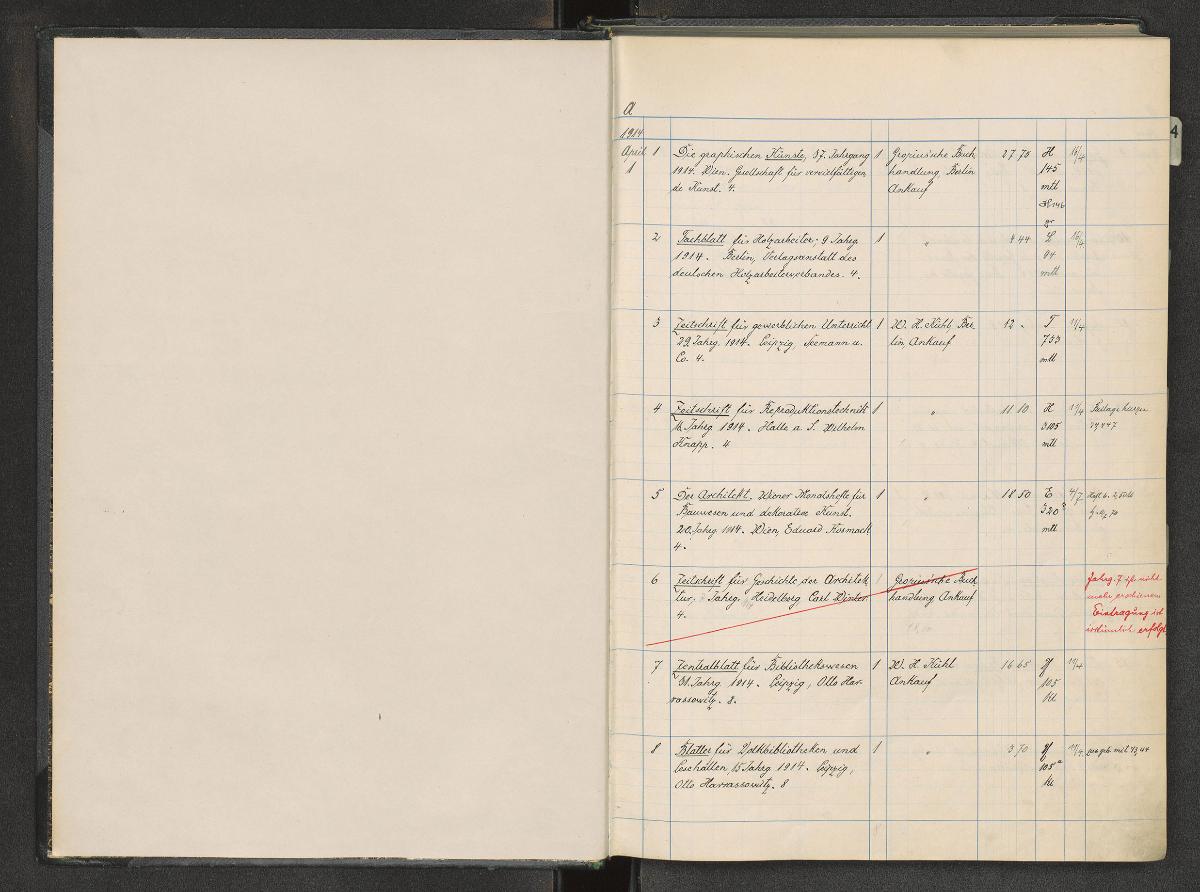 a
1914
April 1 Die graphischen Künste, 37. Jahrgang 1 Gropius'sche Buch 27 75 H 16/4
1 1914. Wien. Gesellschaft für vervielfältigen handlung, Berlin 145
de Kunst. 4. Ankauf mtl
gr
2 Fachblatt für Holzarbeiter; 9 Jahrg. 1 " 4 44 L 16/4
1914. Berlin, Verlagsanstalt des 94
deutschen Holzarbeiterverbandes. 4. mtl
3 Zeitschrift für gewerblichen Unterricht 1 W. H. Kühl, Ber 12 - T 17/4
29. Jahrg. 1914. Leipzig, Seemann u. lin, Ankauf 733
Co. 4. mtl
4 Zeitschrift für Reproduktionstechnik 1 " 11 10 H 17/4 Beilage
16. Jahrg. 1914. Halle a. S. Wilhelm 3105
Knapp. 4 mtl
5 Der Architekt. Wiener Monatshefte für 1 " 18 50 E 4/7
Bauwesen und dekorative Kunst. 320
20. Jahrg. 1914. Wien, Eduard Kosmack mtl
4.
6 Zeitschrift für Geschichte der Architek 1 Gropius'sche Buch Jahrg. 7 ist nicht
tur, Jahrg. Heidelberg Carl Winter. handlung Ankauf mehr erschienen
4. Eintragung ist
irrtümlich erfolgt
7 Zentralblatt für Bibliothekswesen 1 W. H. Kühl 16 65 17/4
31. Jahrg. 1914. Leipzig, Otto Har- Ankauf 105
rassowitz. 8. kl
8 Blätter für Volksbibliotheken und 1 " 3 70 17/4
Lesehallen, 15 Jahrg. 1914. Leipzig, 105a
Otto Harrassowitz. 8 kl
4